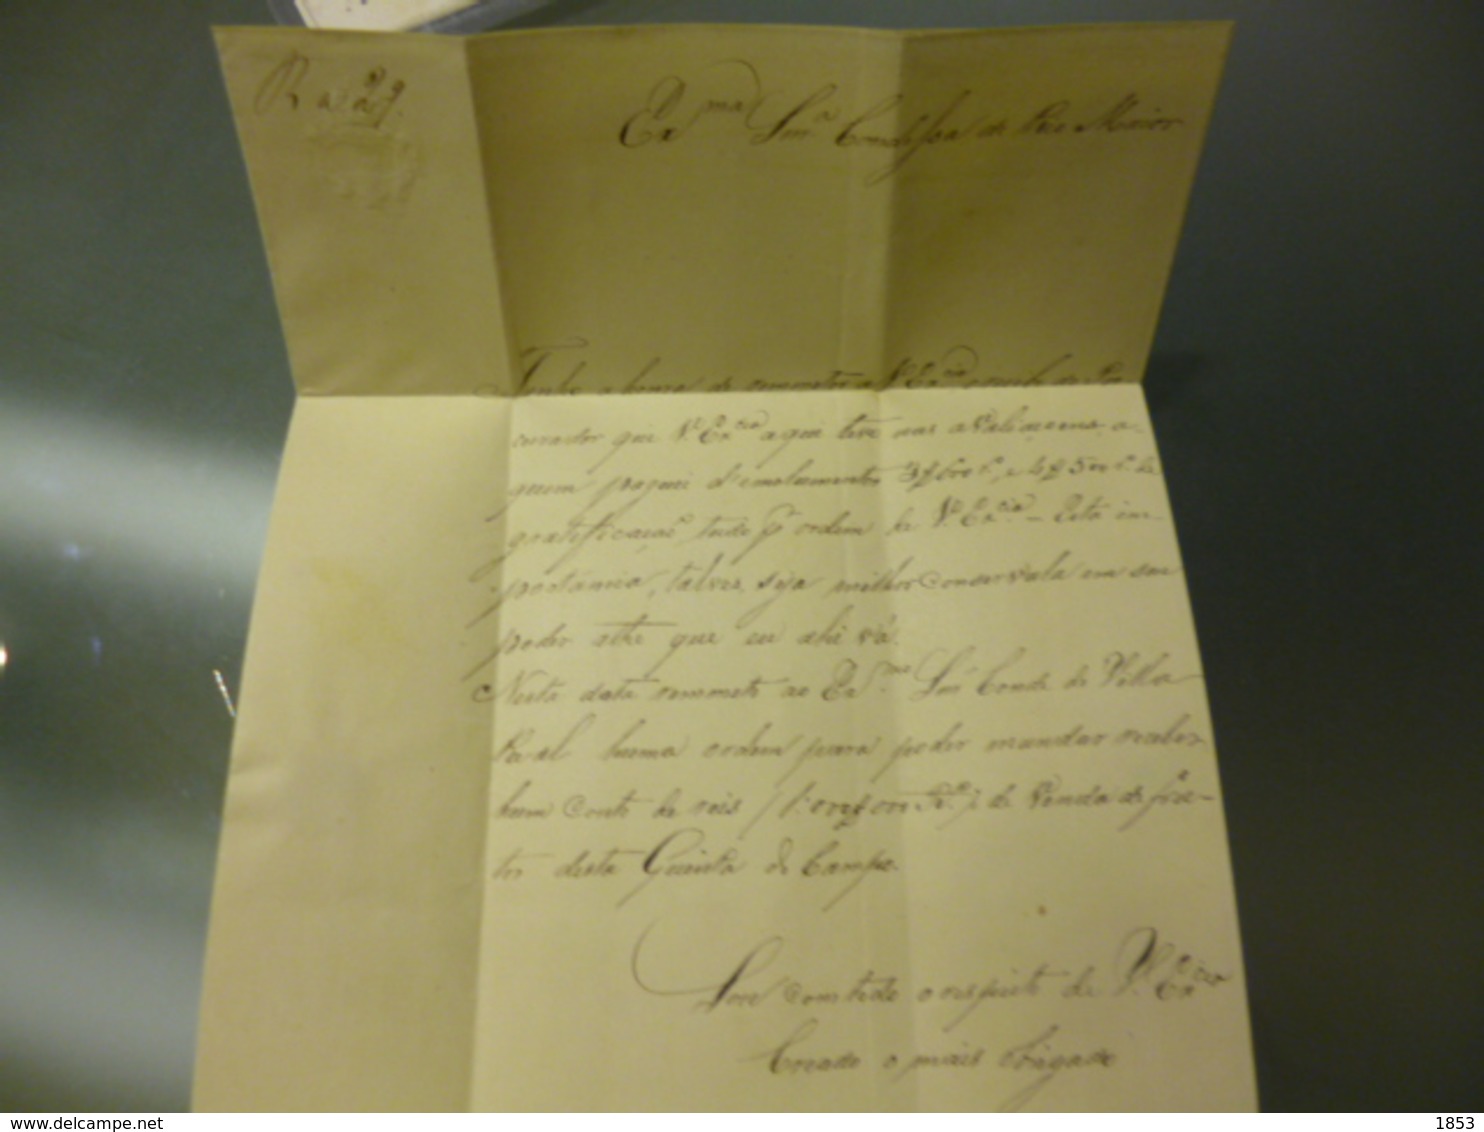 Ex.ma Snr.a Condessa de Rio Maior
Tenho a honra de remmeter a V. Ex.cia
corredor que V. Ex.cia aqui teve nas a
quem paguei d'emolumentos 3$600 r.s, e 4$500 r.s de
gratificação, tudo p.r ordem de V. Ex.cia - Esta im-
portancia, talves seja milhor conservala em seu
poder athe que eu ahi vá.
Nesta data remmeto ao Ex.mo Snr. Conde de Villa
Real huma ordem para poder mandar receber
hum conto de reis / 1:000$000 R.s / de venda de fru-
tos desta Quinta do Campo.
Sou com todo o respeito de V. Ex.cia
Creado o mais obrigado
delcampe.net
1853